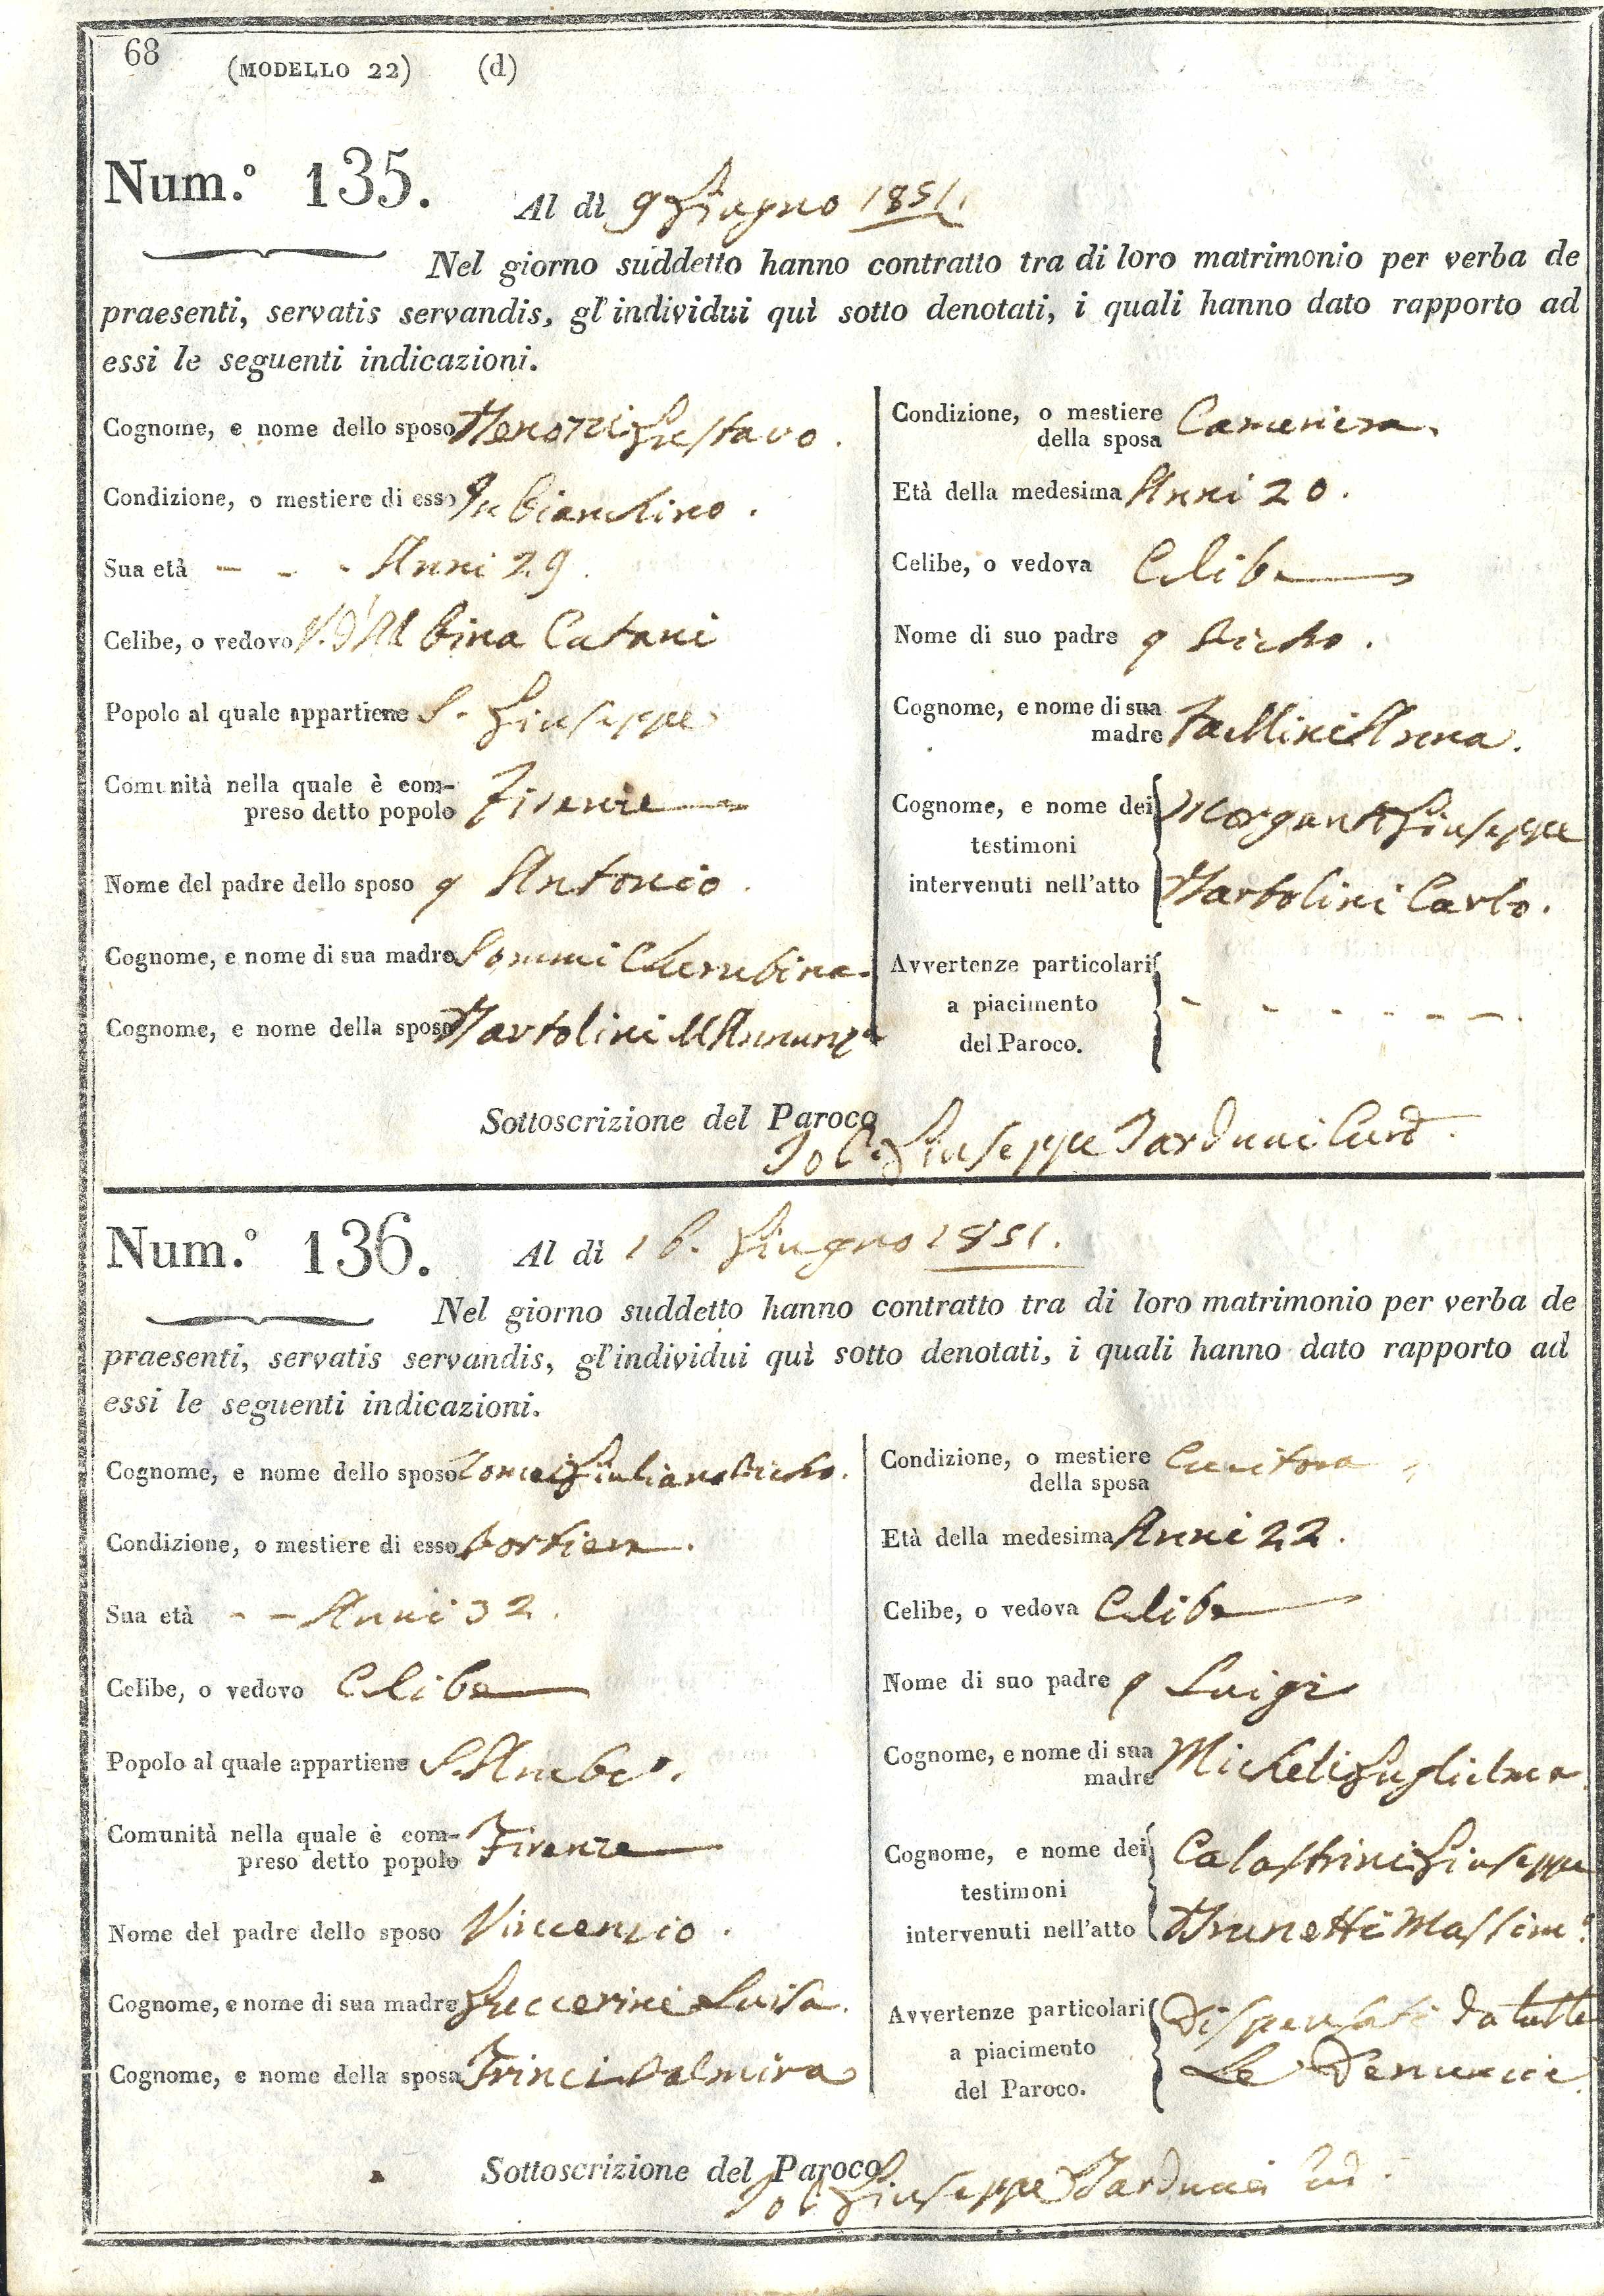 68
(MODELLO 22) (d)
Num.º 135.
Al dì 9 Giugno 1851.
Nel giorno suddetto hanno contratto tra di loro matrimonio per verba de
praesenti, servatis servandis, gl'individui quì sotto denotati, i quali hanno dato rapporto ad
essi le seguenti indicazioni.
Cognome, e nome dello sposo Gustavo.
Condizione, o mestiere di esso Inbianchino.
Sua età - - - Anni 29.
Celibe, o vedovo V. d'Albina Catani
Popolo al quale appartiene S. Giuseppe
Comunità nella quale è com-
preso detto popolo Firenze
Nome del padre dello sposo q Antonio.
Cognome, e nome di sua madre Cherubina.
Cognome, e nome della sposa Bartolini M Annunz.a
Condizione, o mestiere
della sposa Cameriera.
Età della medesima Anni 20.
Celibe, o vedova Celibe
Nome di suo padre q Pietro.
Cognome, e nome di sua
madre Anna.
Cognome, e nome dei
testimoni
intervenuti nell'atto
Morganti Giuseppe
Bartolini Carlo.
Avvertenze particolari
a piacimento
del Paroco.
- - - - - - -.
Sottoscrizione del Paroco
Io C. Giuseppe Tarducci Cur.
Num.º 136.
Al dì 16. Giugno 1851.
Nel giorno suddetto hanno contratto tra di loro matrimonio per verba de
praesenti, servatis servandis, gl'individui quì sotto denotati, i quali hanno dato rapporto ad
essi le seguenti indicazioni.
Cognome, e nome dello sposo Giuliano Pietro.
Condizione, o mestiere di esso Portiere.
Sua età - - Anni 32.
Celibe, o vedovo Celibe
Popolo al quale appartiene S. Ambº.
Comunità nella quale è com-
preso detto popolo Firenze
Nome del padre dello sposo Vincenzio.
Cognome, e nome di sua madre Guccerini Luisa.
Cognome, e nome della sposa Trinci Palmira
Condizione, o mestiere
della sposa Cucitora
Età della medesima Anni 22.
Celibe, o vedova Celibe
Nome di suo padre q Luigi
Cognome, e nome di sua
madre Micheli Guglielma.
Cognome, e nome dei
testimoni
intervenuti nell'atto
Calastrini Giuseppe
Brunetti Massimº.
Avvertenze particolari
a piacimento
del Paroco.
Dispensati da tutte
Le Denunzie
Sottoscrizione del Paroco
Io C Giuseppe Tarducci Cur.